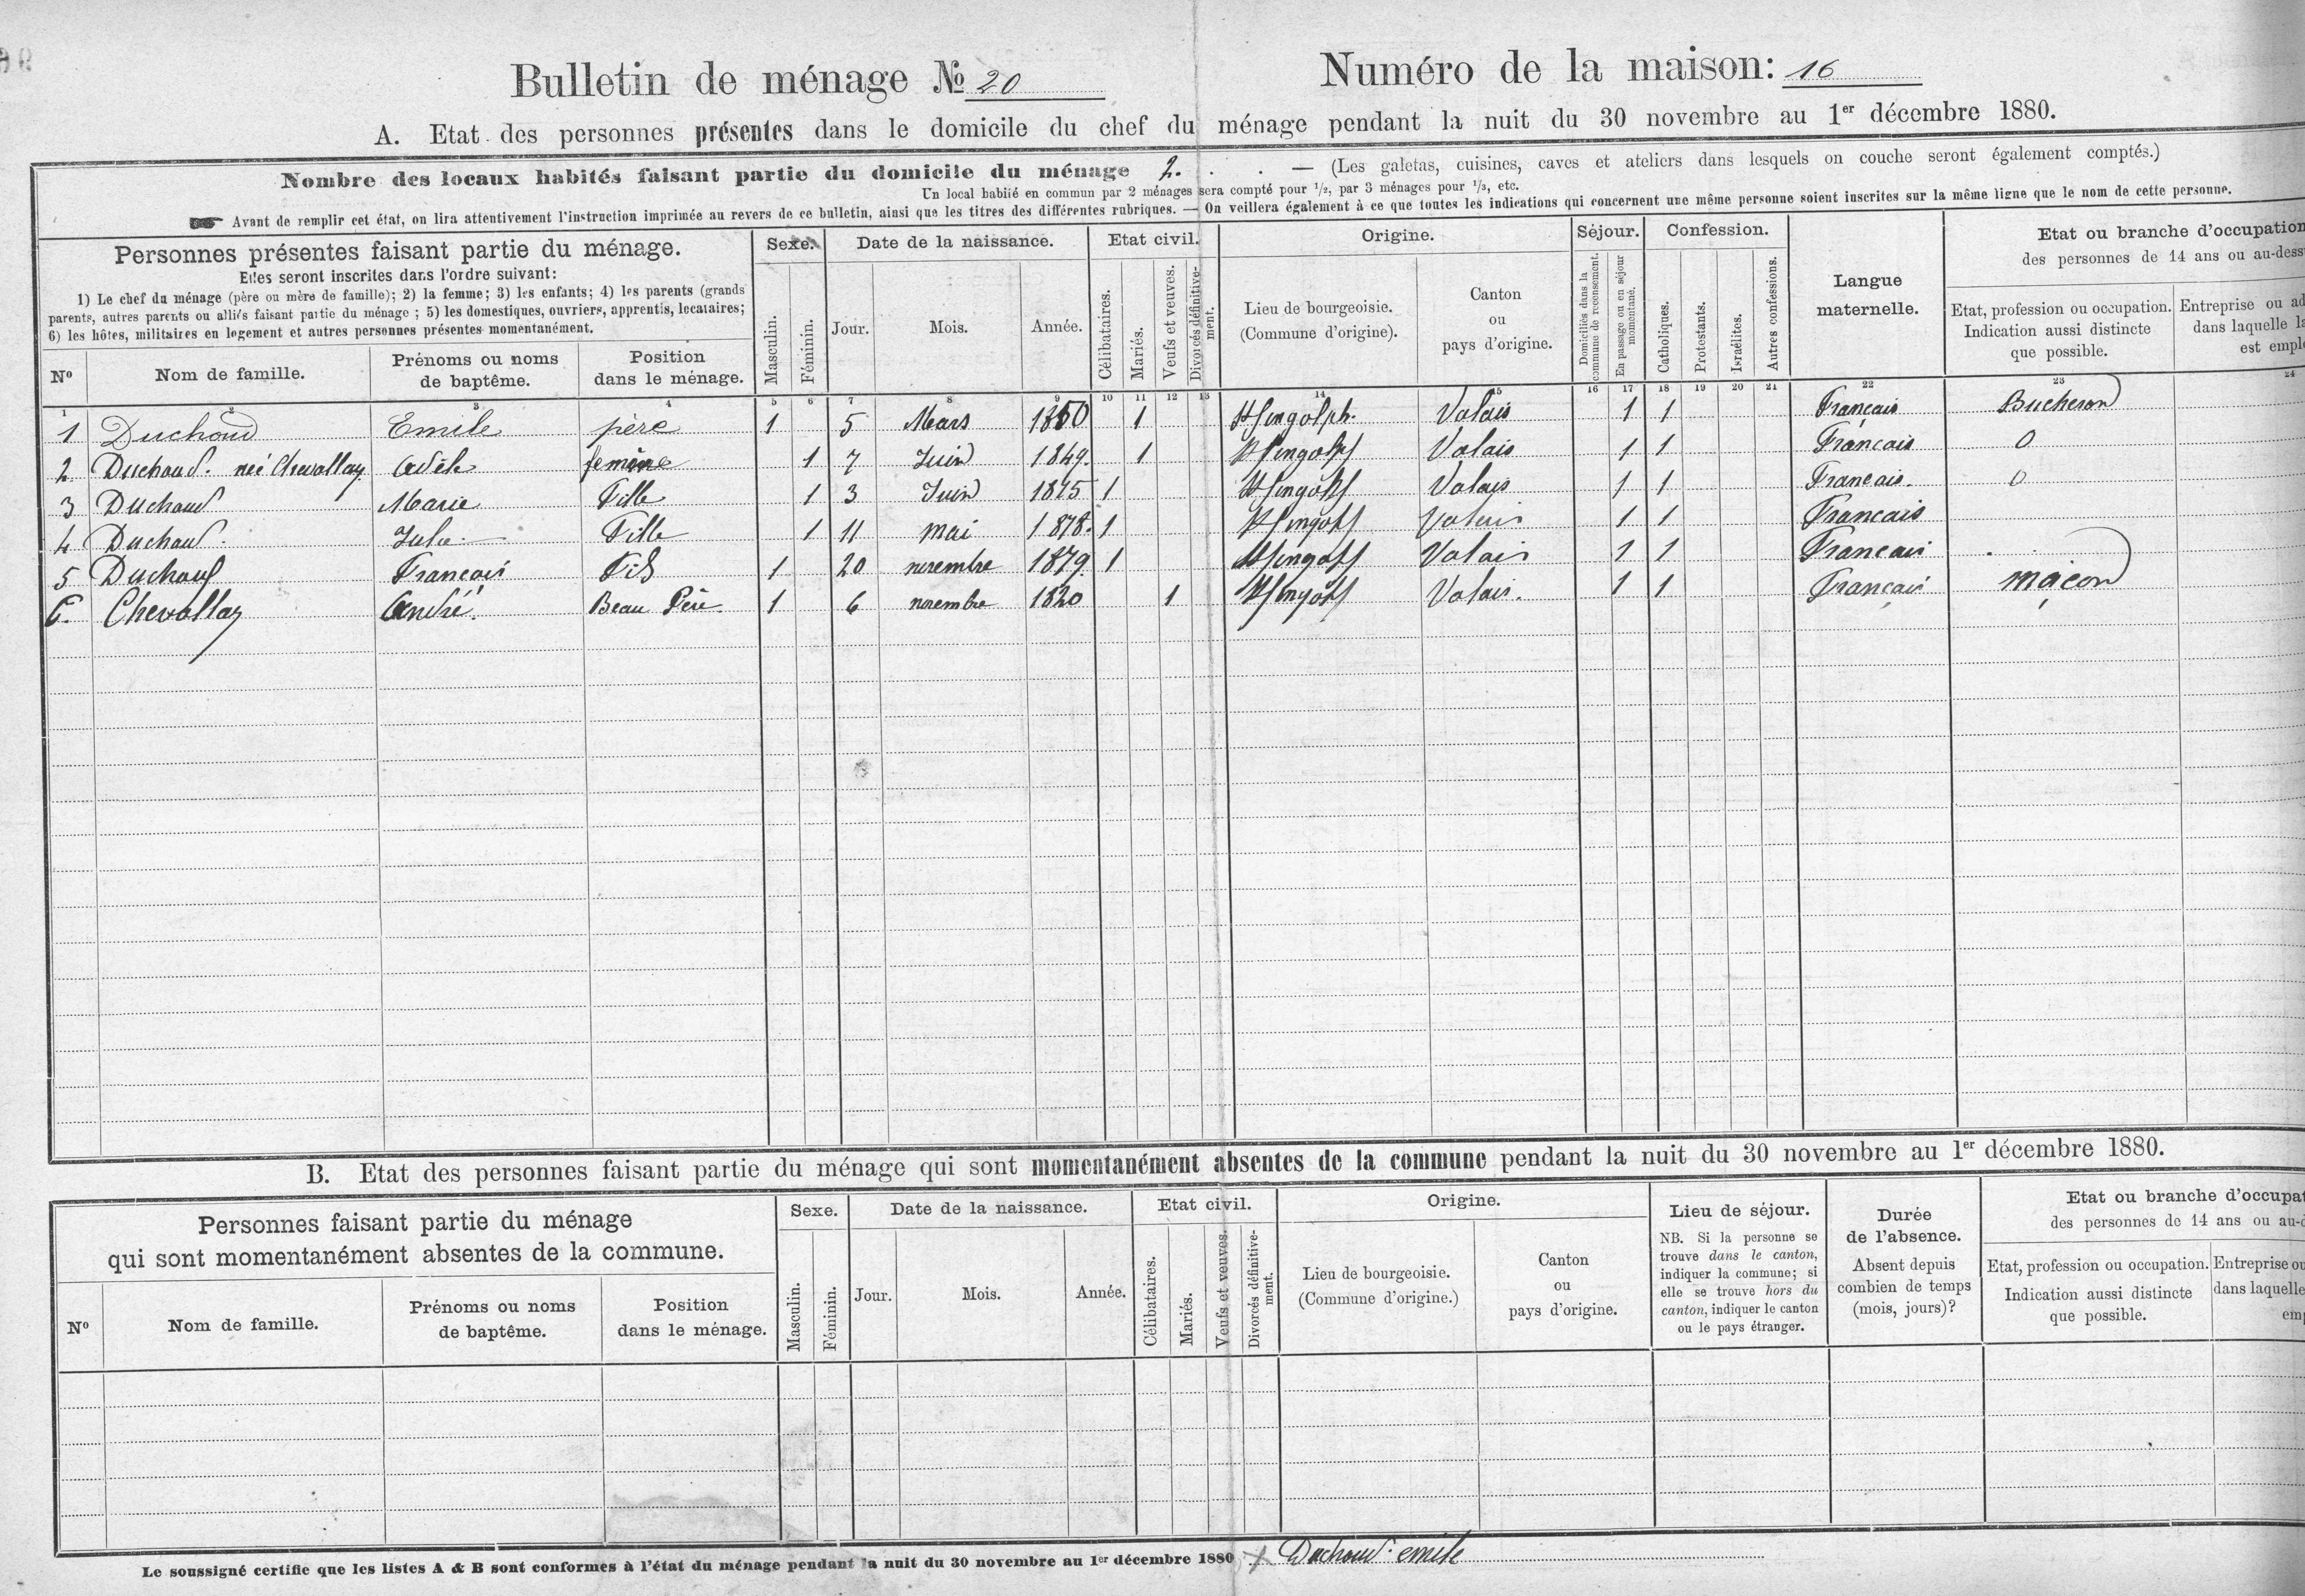 Bulletin de ménage № 20
Numéro de la maison: 16
A. Etat des personnes présentes dans le domicile du chef du ménage pendant la nuit du 30 novembre au 1er décembre 1880.
Nombre des locaux habités faisant partie du domicile du ménage 2. . . — (Les galetas, cuisines, caves et ateliers dans lesquels on couche seront également comptés.)
Un local habité en commun par 2 ménages sera compté pour 1/2, par 3 ménages pour 1/3, etc.
Avant de remplir cet état, on lira attentivement l'instruction imprimée au revers de ce bulletin, ainsi que les titres des différentes rubriques. — On veillera également à ce que toutes les indications qui concernent une même personne soient inscrites sur la même ligne que le nom de cette personne.
Personnes présentes faisant partie du ménage.
Elles seront inscrites dans l'ordre suivant:
1) Le chef du ménage (père ou mère de famille); 2) la femme; 3) les enfants; 4) les parents (grands
parents, autres parents ou alliés faisant partie du ménage ; 5) les domestiques, ouvriers, apprentis, locataires;
6) les hôtes, militaires en logement et autres personnes présentes momentanément.
Nº Nom de famille. Prénoms ou noms de baptême. Position dans le ménage.
Sexe. Masculin. Féminin.
Date de la naissance. Jour. Mois. Année.
Etat civil. Célibataires. Mariés. Veufs et veuves. Divorcés définitivement.
Origine. Lieu de bourgeoisie. (Commune d'origine). Canton ou pays d'origine.
Séjour. Domiciliés dans la commune de recensement. En passage ou en séjour momentané.
Confession. Catholiques. Protestants. Israélites. Autres confessions.
Langue maternelle.
Etat ou branche d'occupation
des personnes de 14 ans ou au-dess
Etat, profession ou occupation. Indication aussi distincte que possible.
Entreprise ou ad
dans laquelle la
est emplo
1 2 3 4 5 6 7 8 9 10 11 12 13 14 15 16 17 18 19 20 21 22 23 24
1 Duchoud Emile père 1 5 Mars 1850 1 St Gingolph. Valais 1 1 Français Bucheron
2 Duchoud. née Chevallay Adèle femme 1 7 Juin 1849. 1 St Gingolph Valais 1 1 Francais 0
3 Duchoud Marie Fille 1 3 Juin 1875 1 St Gingolph Valais 1 1 Francais. 0
4 Duchoud. Julie Fille 1 11 mai 1878. 1 St Gingolph Valais 1 1 Francais
5 Duchoud Francois Fils 1 20 novembre 1879 1 St Gingolph Valais 1 1 Francais
6. Chevallay André. Beau Père 1 6 novembre 1820 1 St Gingolph Valais. 1 1 Français maçon
B. Etat des personnes faisant partie du ménage qui sont momentanément absentes de la commune pendant la nuit du 30 novembre au 1er décembre 1880.
Personnes faisant partie du ménage
qui sont momentanément absentes de la commune.
Nº Nom de famille. Prénoms ou noms de baptême. Position dans le ménage.
Sexe. Masculin. Féminin.
Date de la naissance. Jour. Mois. Année.
Etat civil. Célibataires. Mariés. Veufs et veuves. Divorcés définitivement.
Origine. Lieu de bourgeoisie. (Commune d'origine.) Canton ou pays d'origine.
Lieu de séjour.
NB. Si la personne se
trouve dans le canton,
indiquer la commune; si
elle se trouve hors du
canton, indiquer le canton
ou le pays étranger.
Durée
de l'absence.
Absent depuis
combien de temps
(mois, jours)?
Etat ou branche d'occupat
des personnes de 14 ans ou au-d
Etat, profession ou occupation. Indication aussi distincte que possible.
Entreprise ou
dans laquelle
emp
Le soussigné certifie que les listes A & B sont conformes à l'état du ménage pendant la nuit du 30 novembre au 1er décembre 1880 Duchoud emile